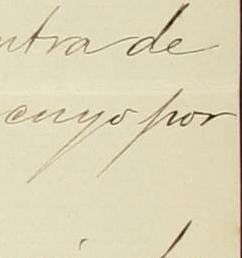 ntra de
cuyo por